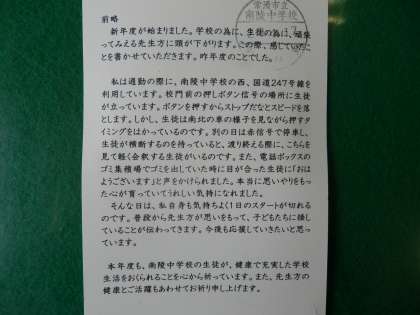 常滑市立
南陵中学校
前略
新年度が始まりました。学校の為に、生徒の為に、頑張
ってみえる先生方に頭が下がります。この際、感じていたこ
とを書かせていただきます。昨年度のことでした。
私は通勤の際に、南陵中学校の西、国道247号線を
利用しています。校門前の押しボタン信号の場所に生徒
が立っています。ボタンを押すからストップだなとスピードを落
とします。しかし、生徒は南北の車の様子を見ながら押すタ
イミングをはかっているのです。別の日は赤信号で停車し、
生徒が横断するのを待っていると、渡り終える際に、こちらを
見て軽く会釈する生徒がいるのです。また、電話ボックスの
ゴミ集積場でゴミを出していた時に目が合った生徒に「おは
ようございます」と声をかけられました。本当に思いやりをもっ
た心が育っていてうれしい気持になれました。
そんな日は、私自身も気持ちよく1日のスタートが切れる
のです。普段から先生方が思いをもって、子どもたちに接し
ていることが伝わってきます。今後も応援していきたいと思っ
ています。
本年度も、南陵中学校の生徒が、健康で充実した学校
生活をおくられることを心から祈っています。また、先生方の
健康とご活躍もあわせてお祈り申し上げます。